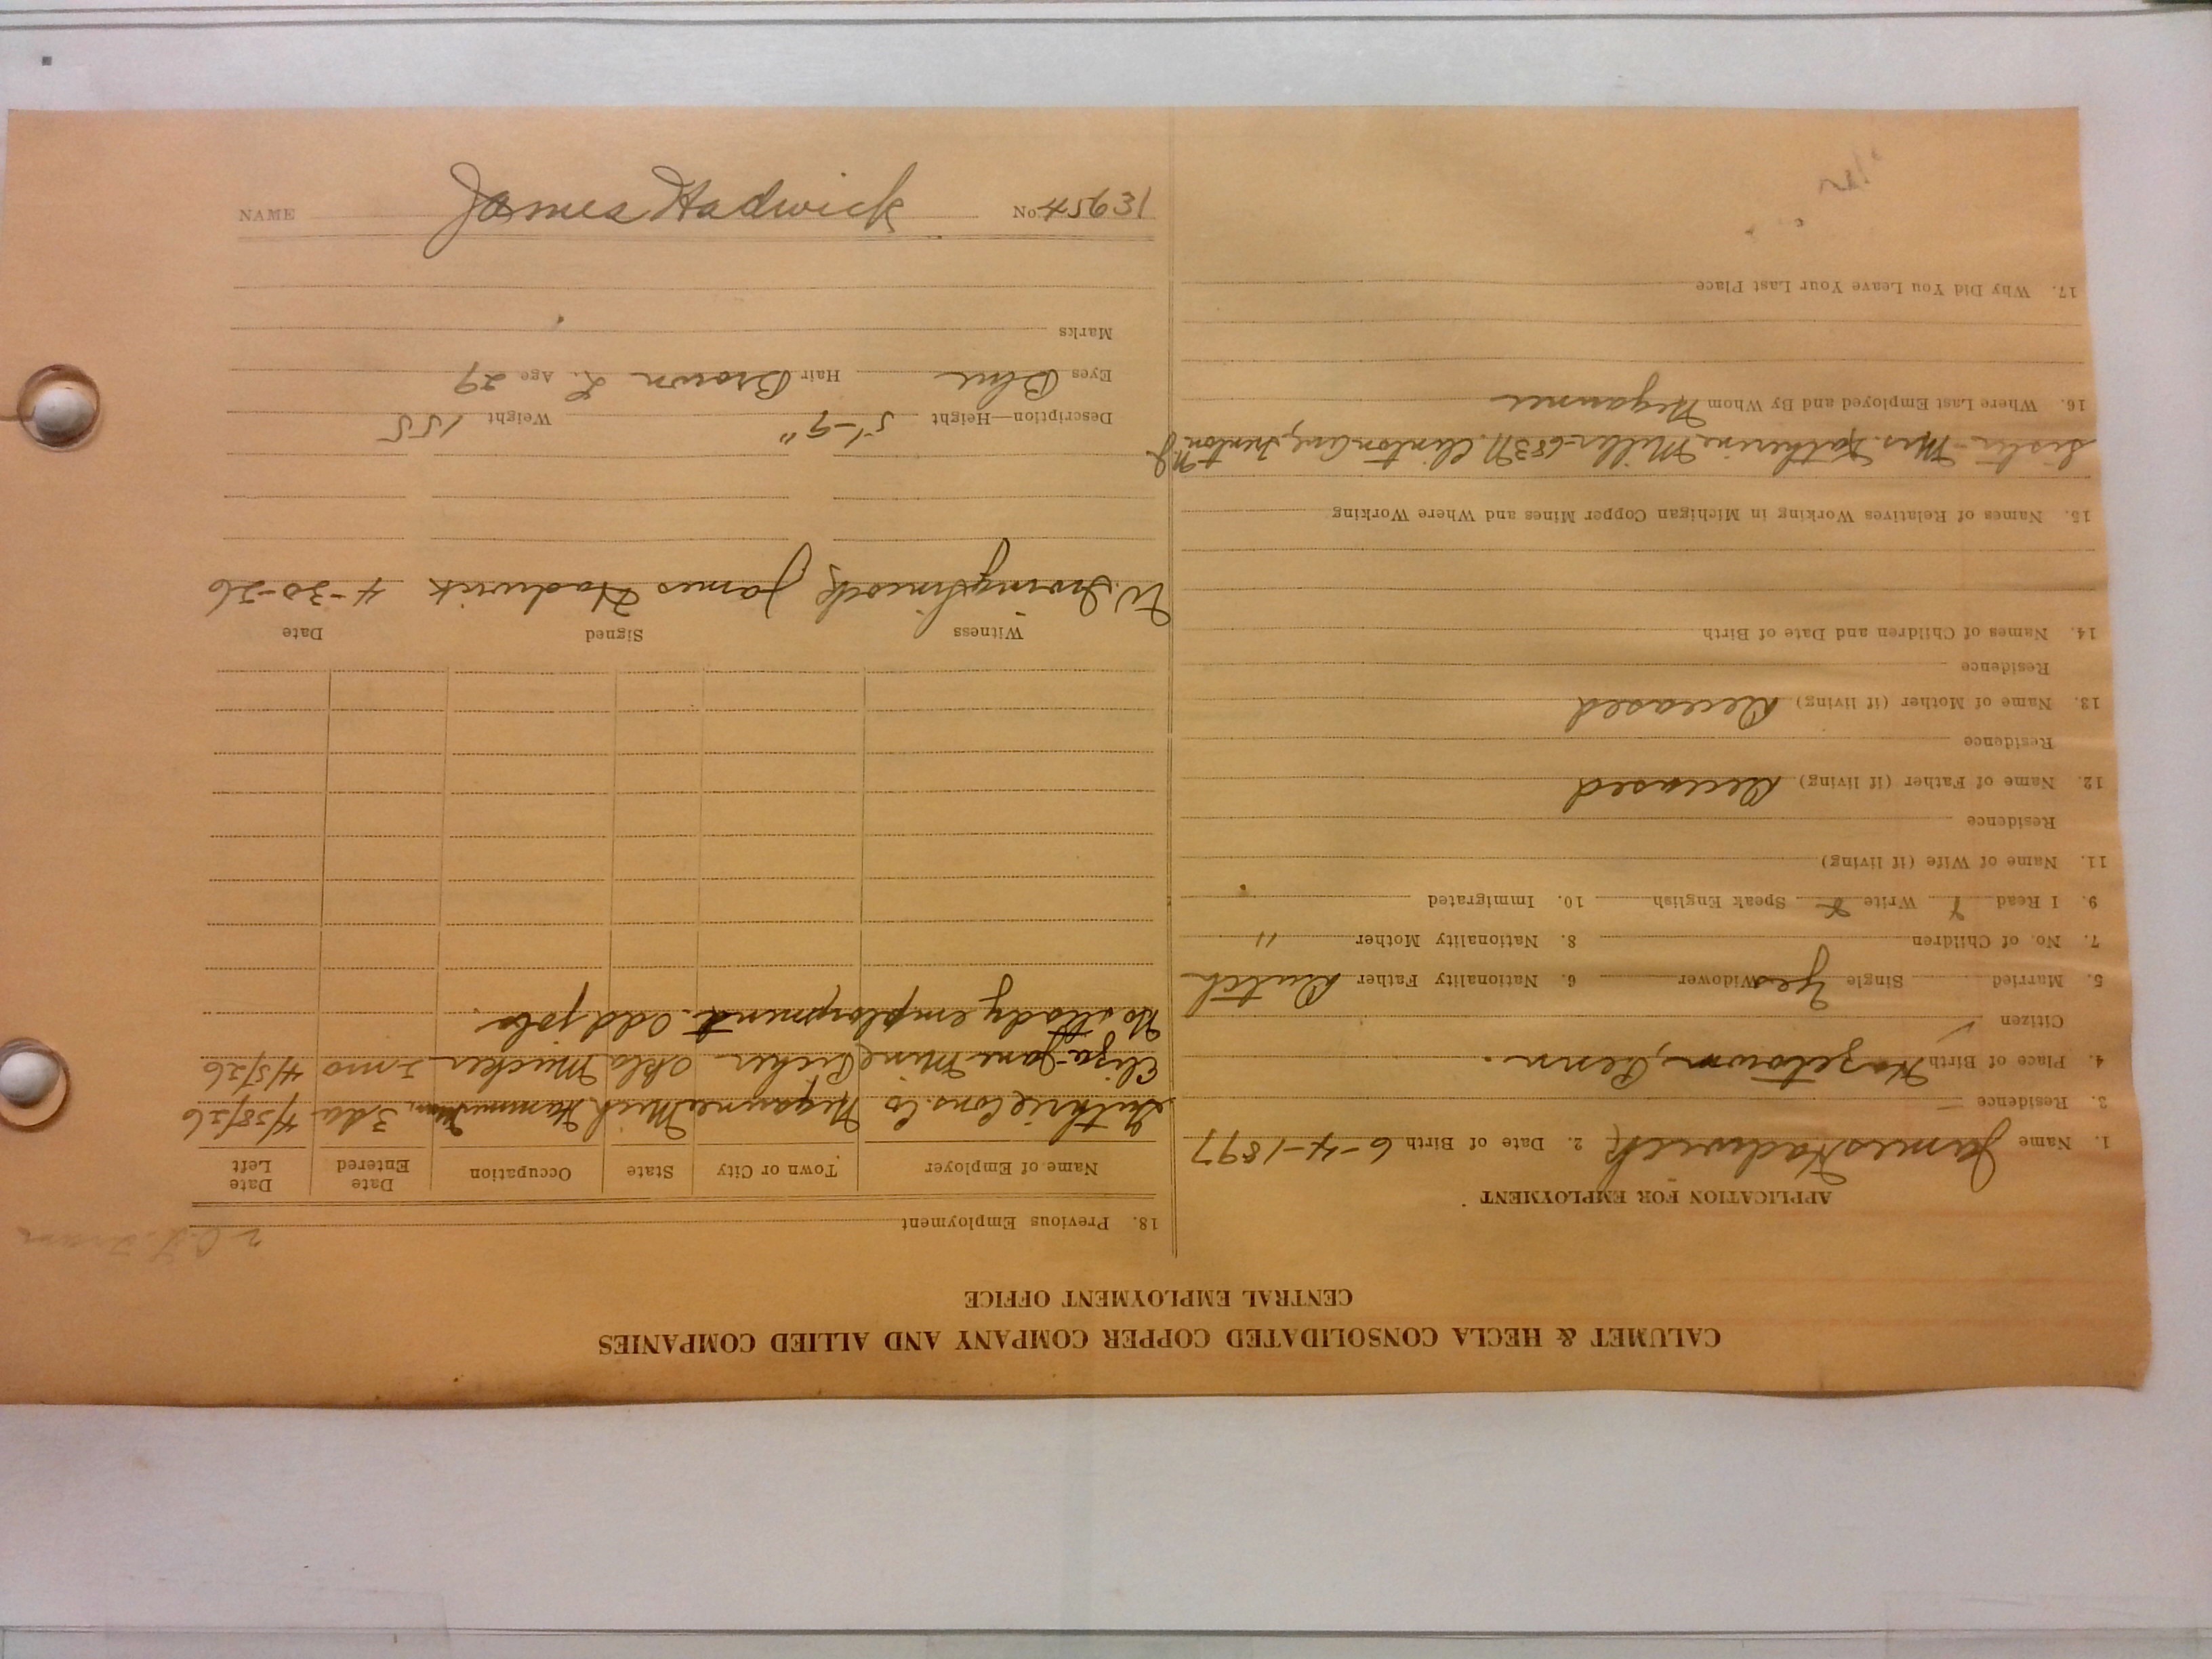 CALUMET & HECLA CONSOLIDATED COPPER COMPANY AND ALLIED COMPANIES
CENTRAL EMPLOYMENT OFFICE
APPLICATION FOR EMPLOYMENT
1. Name James Hadwick 2. Date of Birth 6-4-1897
3. Residence
4. Place of Birth Hazetown, Penn.
Citizen ✓
5. Married Single Yes Widower 6. Nationality Father Dutch
7. No. of Children 8. Nationality Mother "
9. I Read Write Speak English 10. Immigrated
11. Name of Wife (if living)
Residence
12. Name of Father (if living) Deceased
Residence
13. Name of Mother (if living) Deceased
Residence
14. Names of Children and Date of Birth
15. Names of Relatives Working in Michigan Copper Mines and Where Working
Sister - Mrs. Katherine Miller - 683 N. Clinton Ave, Trenton N.J.
16. Where Last Employed and By Whom Negaunee
17. Why Did You Leave Your Last Place
18. Previous Employment
Name of Employer Town or City State Occupation Date Entered Date Left
Guthrie Cons. Co Negaunee Mich 3 da 4/28/26
Eliza-Jane Mine Picher Okla Mucker 2 mo 4/5/26
No steady employment. Odd jobs.
Witness Signed Date
W. James Hadwick 4-30-26
Description—Height 5'-9" Weight 155
Eyes Blue Hair Brown L. Age 29
Marks
NAME James Hadwick No. 45631